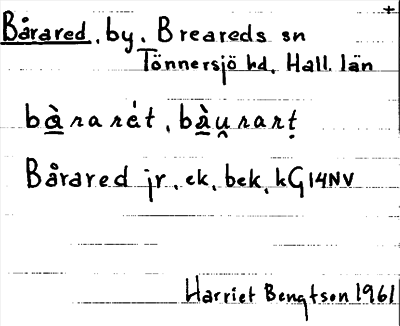 +
Bårared, by, Breareds sn
Tönnersjö hd, Hall. län
bàrarét, bàu̯rarṭ
Bårared jr, ek, bek, kG14NV
Harriet Bengtson 1961